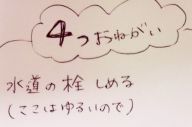 4つおねがい
水道の栓 しめる
(ここはゆるいので)